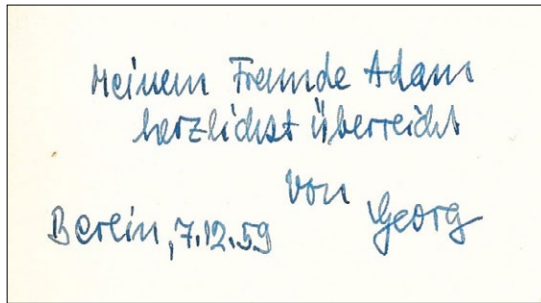 Meinem Freunde Adam
herzlichst überreicht
von
Georg
Berlin, 7.12.59